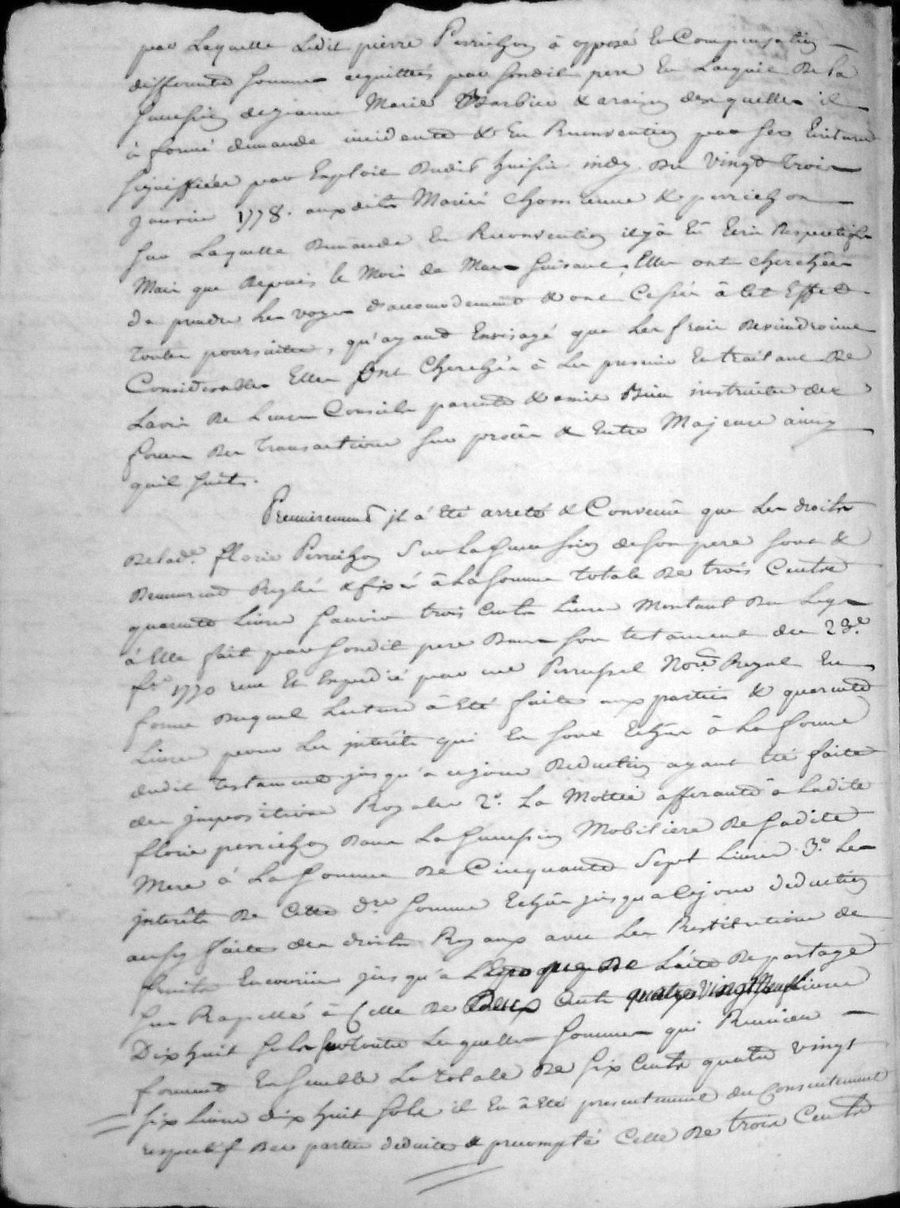 par Laquelle Ledit pierre Perrichon à opposé En Compensation
differente somme acquittés par sondit pere En Lacquit De la
sucession de jeanne Marie Barbier & araison desquelles il
à formé demande incidente & En Reconvention par ses Ecriture
signiffiées par Exploit Dudit huissier Du Vingt Trois
janvier 1778. auxdits Mariés & perrichon
sur Laquelle Demande En Reconvention il y à Eu Ecrit Respectifs
Mais que Depuis le Mois de Mars suivant, Elles ont cherchées
De prendre les voyes d'accomodement & ont Cessée à Cet Effet
toutes poursuittes, qu'ayant Envisagé que Les frais deviendroint
Considerables Elles ont Cherchés à Les prevenir En traitant De
Lavis De Leurs Conseils parents & amis Bien instruites des
forces Des Transactions sur procès & Entre Majeurs ainsy
quil suit.
Premierement il à été arreté & Convenu que Les droits
De lad.e florie Perrichon sur La sucession de son pere sont &
Demeurent Reglés & fixés à La somme totale De trois Cents
quarante Livres sçavoir trois Cents Livres Montant Du Legs
à Elle fait par sondit pere Dans son testament du 23.e
1770 reçu Et Expedié par me Perrussel No.re Royal En
forme Duquel Lecture à été faite aux parties & quarante
Livres pour Les interêts qui En sont Echus à La forme
dudit Testament jusqu'a cejour Deduction ayant été faite
des impositions Royales 2.o La Moitié afferante à Ladite
florie perrichon Dans La sucession Mobiliere De sadite
Mere à La somme De Cinquante Sept Livres 3.o Les
interêts De Cette d.re somme Echus jusqua Cejour deduction
aussy faite des droits Royaux avec Les Restitutions de
fruits Encourus jusqu'a L'Epoque De L'acte De partage
sus Rapellé à Celle De Deux Cents quatre Vingt Neuf Livres
Dix huit sols toutes Lesquelles sommes qui Reunies
forment Ensemble La totale De Six Cents quatre vingt
six Livres dix huit sols il En à été presentement du Consentement
respectif Des parties déduite & precompté Celle De trois Cents